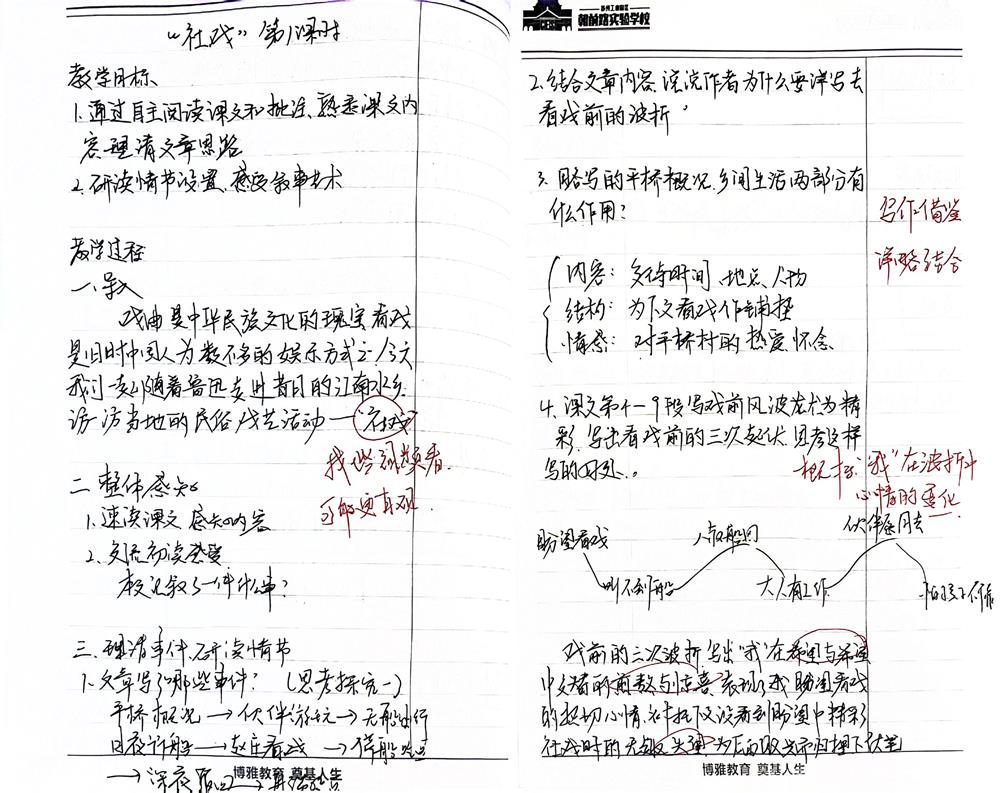 "社戏"第1课时
教学目标
1.通过自主阅读课文和批注、熟悉课文内
容理清文章思路
2.研读情节设置、感受叙事艺术
教学过程
一.导入
戏曲是中华民族文化的瑰宝看戏
是旧时中国人为数不多的娱乐方式之一今天
我们一起随着鲁迅走进昔日的江南水乡
访一访当地的民俗文艺活动——社戏
找些视频看
可能更直观.
二 整体感知
1.速读课文 感知内容
2.交流初读感受
本文叙了一件什么事?
三.理清事件、研读情节
1.文章写了哪些事件? (思考探究一)
平桥概况 → 伙伴游玩 → 无船出行
日夜 → 赵庄看戏 →
→ 深夜
博雅教育 奠基人生
苏州工业园区
朝前路实验学校
2.结合文章内容、说说作者为什么要详写去
看戏前的波折
3.略写的平桥概况、乡间生活两部分有
什么作用?
写作借鉴
详略结合
内容: 交待时间、地点、人物
结构: 为下文看戏作铺垫
情感: 对平桥村的热爱 怀念
4.课文第4—9段写戏前风波尤为精
彩 写出看戏前的三次起伏 思考这样
写的好处.
标"我"在波折中
心情的变化.
盼望看戏
叫不到船
大人有工作
伙伴愿同去
戏前的三次波折 写出"我"在希望与希望
中交替的 与惊喜 表现了我盼望看戏
的 切心情
看戏时的 失望 为后面 埋下伏笔
博雅教育 奠基人生